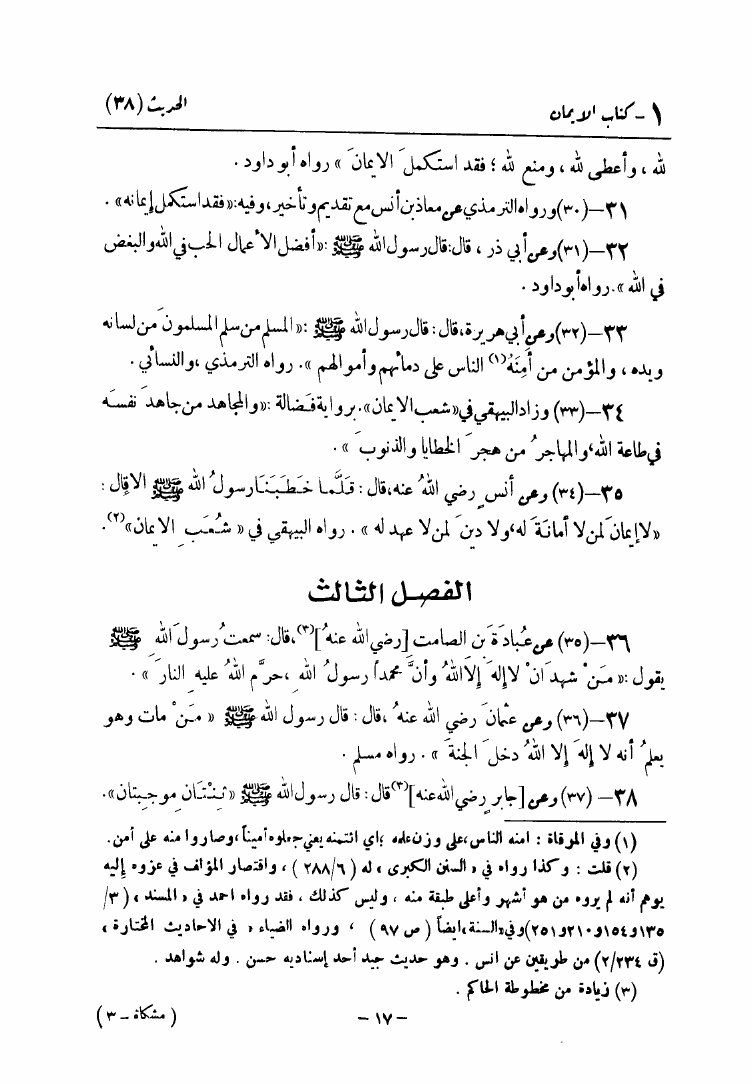 ١ - كتاب الايمان الحديث (٣٨)
لله ، وأعطى لله ، ومنع لله ؛ فقد استكملَ الايمانَ » رواه أبو داود .
٣١-(٣٠) ورواه الترمذي عن معاذ بن أنس مع تقديم وتأخير، وفيه: «فقد استكمل إيمانه» .
٣٢-(٣١) وعن أبي ذر ، قال: قال رسول الله ﷺ :«أفضل الأعمال الحب في الله والبغض
في الله ». رواه أبو داود .
٣٣-(٣٢) وعن أبي هريرة، قال : قال رسول الله ﷺ :« المسلم من سلم المسلمونَ من لسانه
ويده ، والمؤمن من أمِنَهُ(١) الناس على دمائهم وأموالهم ». رواه الترمذي ،والنسائي .
٣٤-(٣٣) وزاد البيهقي في «شعب الايمان». برواية فَضالة :«والمجاهد من جاهدَ نفسَه
في طاعة الله، والمهاجرُ من هجرَ الخطايا والذنوبَ » .
٣٥-(٣٤) وعن أنسٍ رضي اللهُ عنه، قال : قَلَّما خَطَبَنَا رسولُ الله ﷺ الا قال :
«لا إيمانَ لمن لا أمانةَ له، ولا دينَ لمن لا عهد له » . رواه البيهقي في « شُعَبِ الايمان»(٢).
الفصل الثالث
٣٦-(٣٥) عن عُبادَةَ بن الصامت [رضي الله عنهُ](٣)،قال: سمعتُ رسولَ اللهِ ﷺ
يقول :« مَنْ شهد انْ لا إلهَ إلا اللهُ وأنَّ محمداً رسولُ اللهِ ،حرَّم اللهُ عليه النارَ » .
٣٧-(٣٦) وعن عثمانَ رضي الله عنهُ ،قال : قال رسول الله ﷺ « مَنْ مات وهو
يعلمُ أنه لا إلهَ إلا اللهُ دخلَ الجنةَ » . رواه مسلم .
٣٨- (٣٧) وعن [جابرٍ رضي الله عنه](٣) قال : قال رسول الله ﷺ «ثِنْتَانِ موجبتان».
(١) وفي المرقاة : امنه الناس، على وزن علمه ؛اي ائتمنه يعني جعلوه أميناً، وصاروا منه على أمن.
(٢) قلت : وكذا رواه في « السنن الكبرى » له (٢٨٨/٦) ، واقتصار المؤلف في عزوه إليه
يوهم أنه لم يروه من هو أشهر وأعلى طبقة منه ، وليس كذلك ، فقد رواه احمد في « المسند » (٣/
١٣٥ و١٥٤ و٢١٠ و٢٥١) وفي «السنة» ايضاً (ص ٩٧) ، ورواه الضياء « في الاحاديث المختارة »
(ق ٢/٢٣٤) من طريقين عن انس . وهو حديث جيد أحد إسناديه حسن . وله شواهد .
(٣) زيادة من مخطوطة الحاكم .
- ١٧ - ( مشكاة - ٣ )